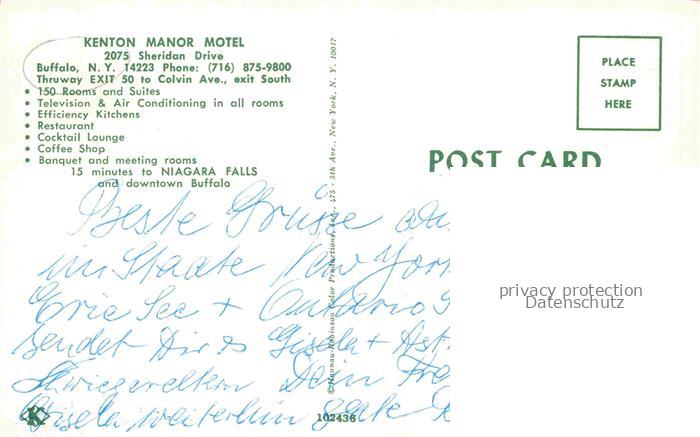 KENTON MANOR MOTEL
2075 Sheridan Drive
Buffalo, N. Y. 14223 Phone: (716) 875-9800
Thruway EXIT 50 to Colvin Ave., exit South
• 150 Rooms and Suites
• Television & Air Conditioning in all rooms
• Efficiency Kitchens
• Restaurant
• Cocktail Lounge
• Coffee Shop
• Banquet and meeting rooms
15 minutes to NIAGARA FALLS
and downtown Buffalo
Beste Grüsse
im Staate New York
Erie See + Ontario
sendet Dir Gisela +
Schwiegereltern Dein
Gisela weiterhin gute
K
102436
Color Productions, Inc., 475 - 5th Ave., New York, N. Y. 10017
PLACE
STAMP
HERE
POST CARD
privacy protection
Datenschutz